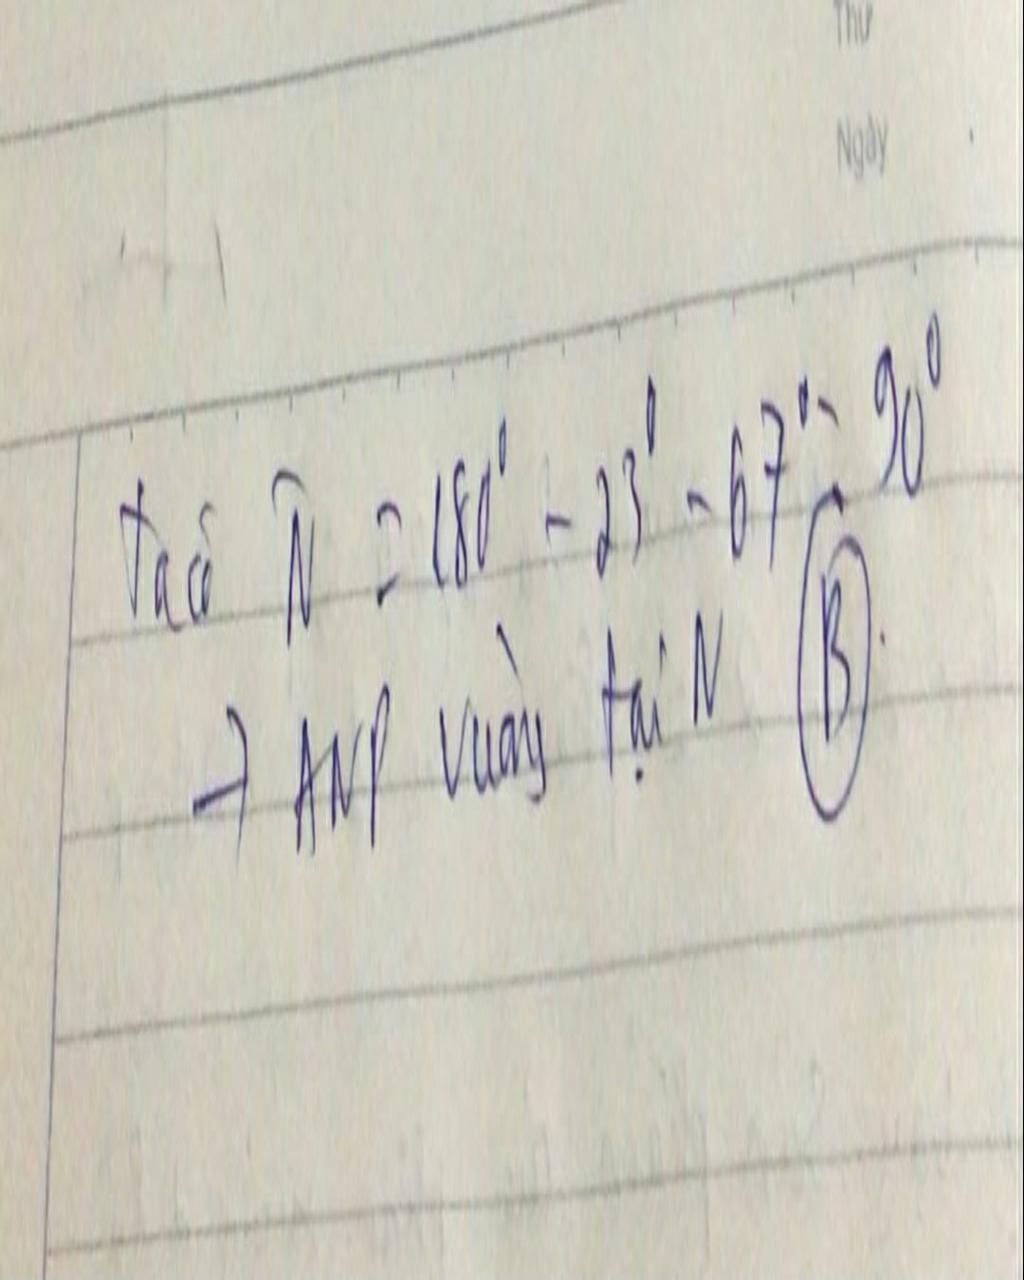 Thứ
Ngày
Ta có N̂ = 180⁰ - 23⁰ - 67⁰ = 90⁰
→ ANP vuông tại N (B)